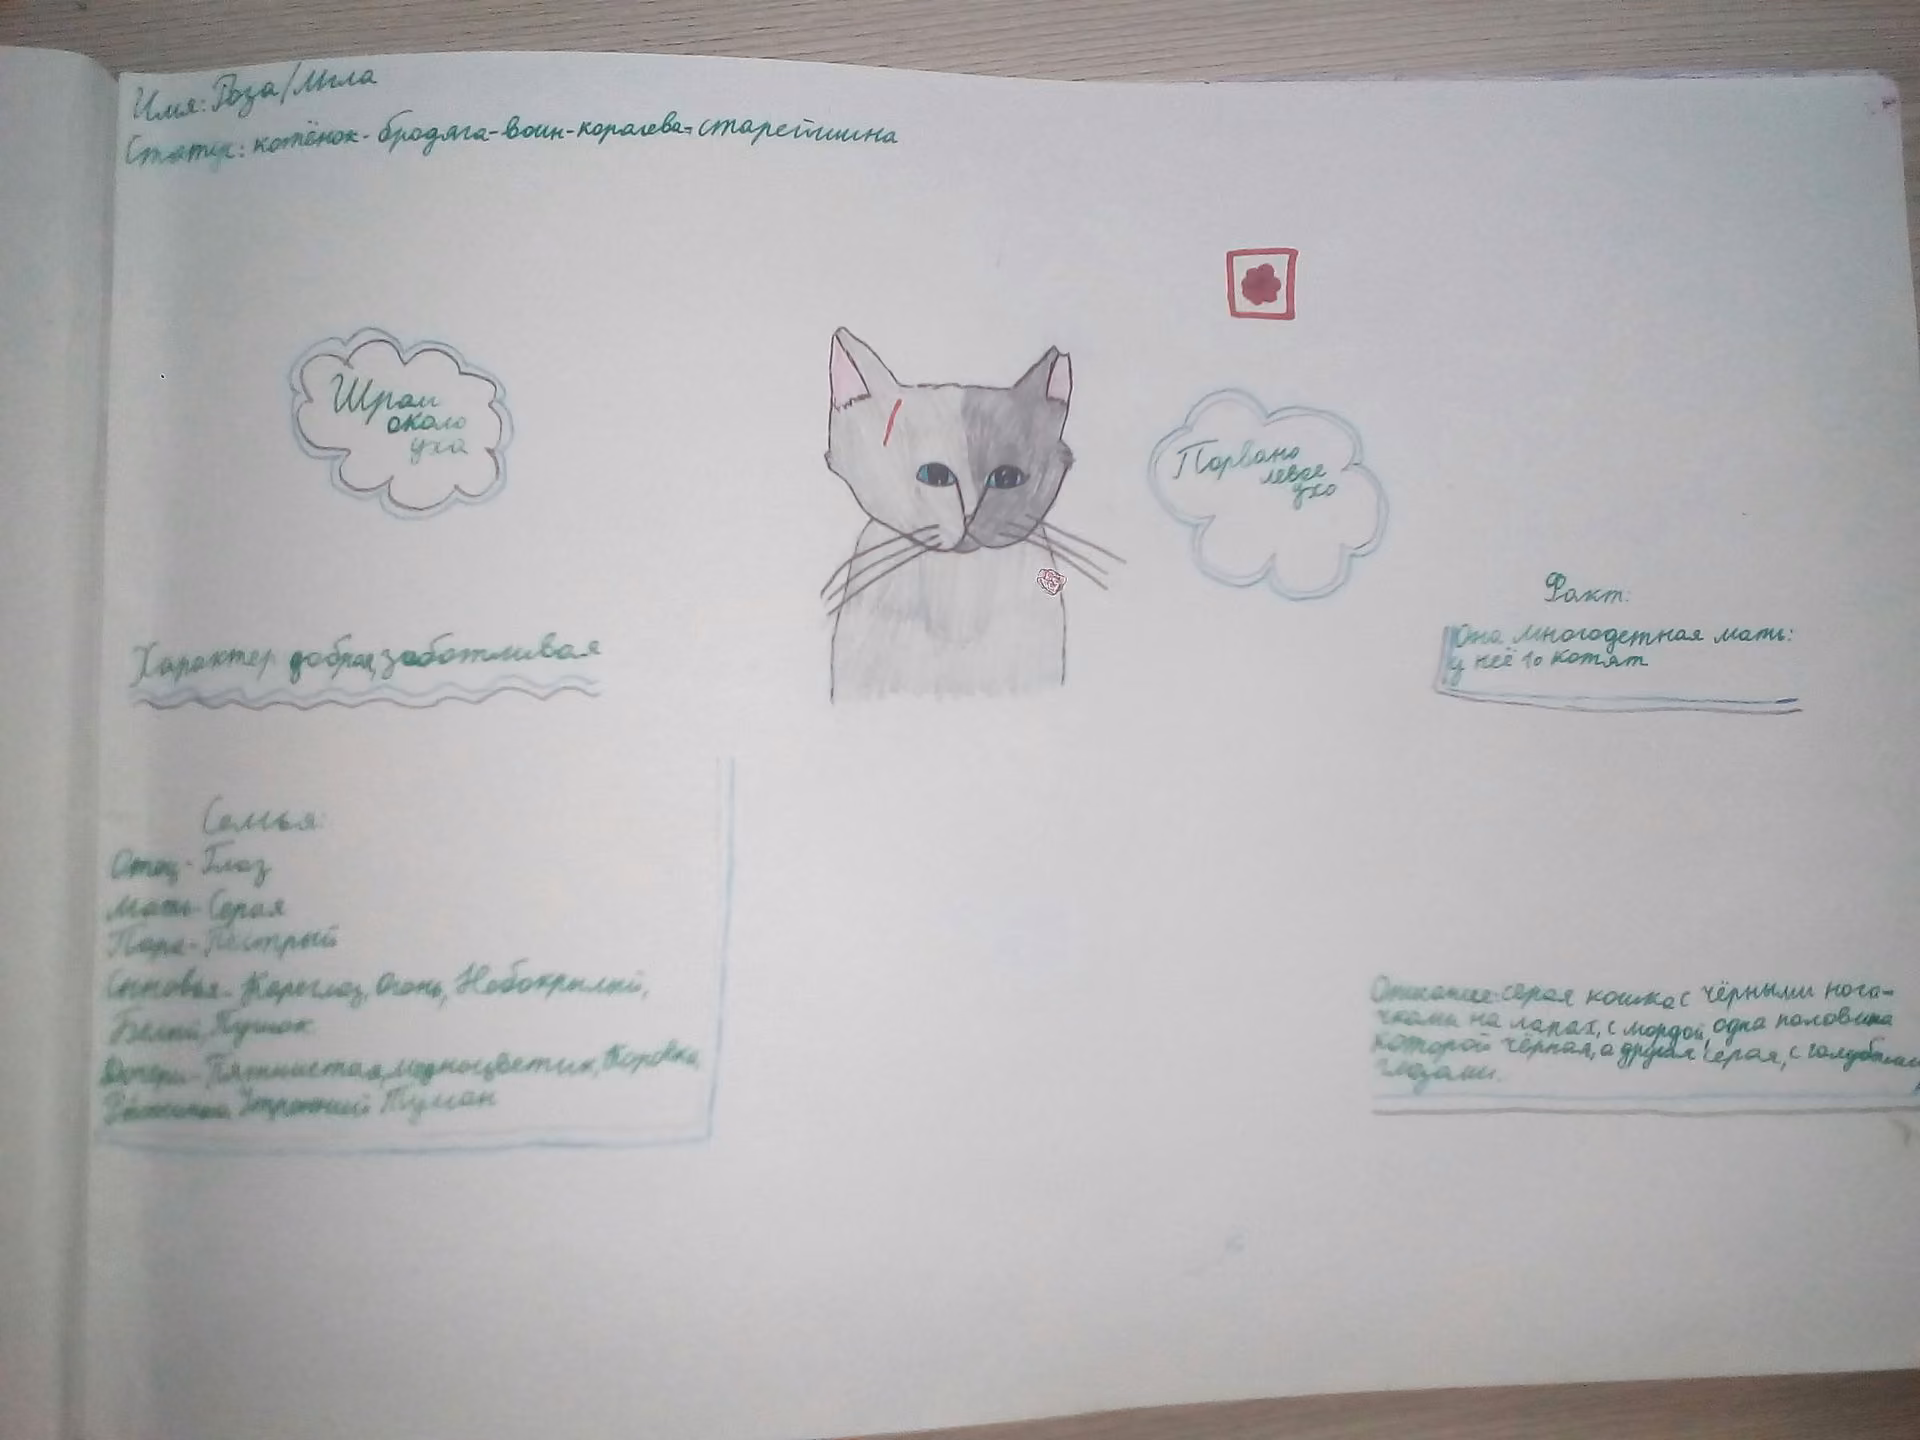 Имя: Роза/Мгла
Статус: котёнок-бродяга-воин-королева-старейшина
Шрам
около
уха
Порвано
левое
ухо
Факт:
Она многодетная мать:
у неё 10 котят
Характер добрая, заботливая
Семья:
Отец-Глаз
Мать-Серая
Пара-Пёстрый
Сыновья-Кареглаз, Огонь, Небокрылый,
Белка, Пушок
Дочери-Пятнистая, медноцветик, Коровка,
Утренний Туман
Описание: серая кошка с чёрными носо-
чками на лапах, с мордой, одна половина
которой чёрная, а другая серая, с голубыми
глазами.